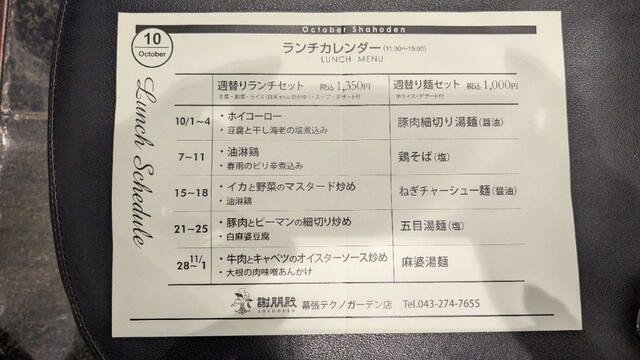 October Shahoden
10
October
Lunch Schedule
ランチカレンダー(11:30〜15:00)
LUNCH MENU
週替りランチセット 税込 1,350円
主菜・副菜・ライス(白米またはおかゆ)・スープ・デザート付
週替り麺セット 税込 1,000円
半ライス・デザート付
10/1~4
・ホイコーロー
・豆腐と干し海老の塩煮込み
豚肉細切り湯麺(醤油)
7~11
・油淋鶏
・春雨のピリ辛煮込み
鶏そば(塩)
15~18
・イカと野菜のマスタード炒め
・油淋鶏
ねぎチャーシュー麺(醤油)
21~25
・豚肉とピーマンの細切り炒め
・白麻婆豆腐
五目湯麺(塩)
28~11/1
・牛肉とキャベツのオイスターソース炒め
・大根の肉味噌あんかけ
麻婆湯麺
謝朋殿 幕張テクノガーデン店 Tel.043-274-7655
SHAHODEN